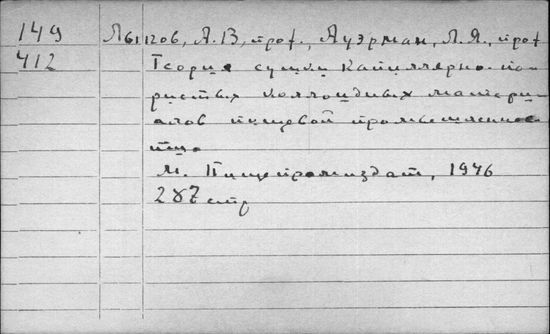 149 Лыков, А. В., проф., Ауэрман, Л. Я., проф
412 Теория сушки капиллярно-по
ристых коллоидных матери
алов пищевой промышленнос
ти
М. Пищепромиздат, 1946
287 стр